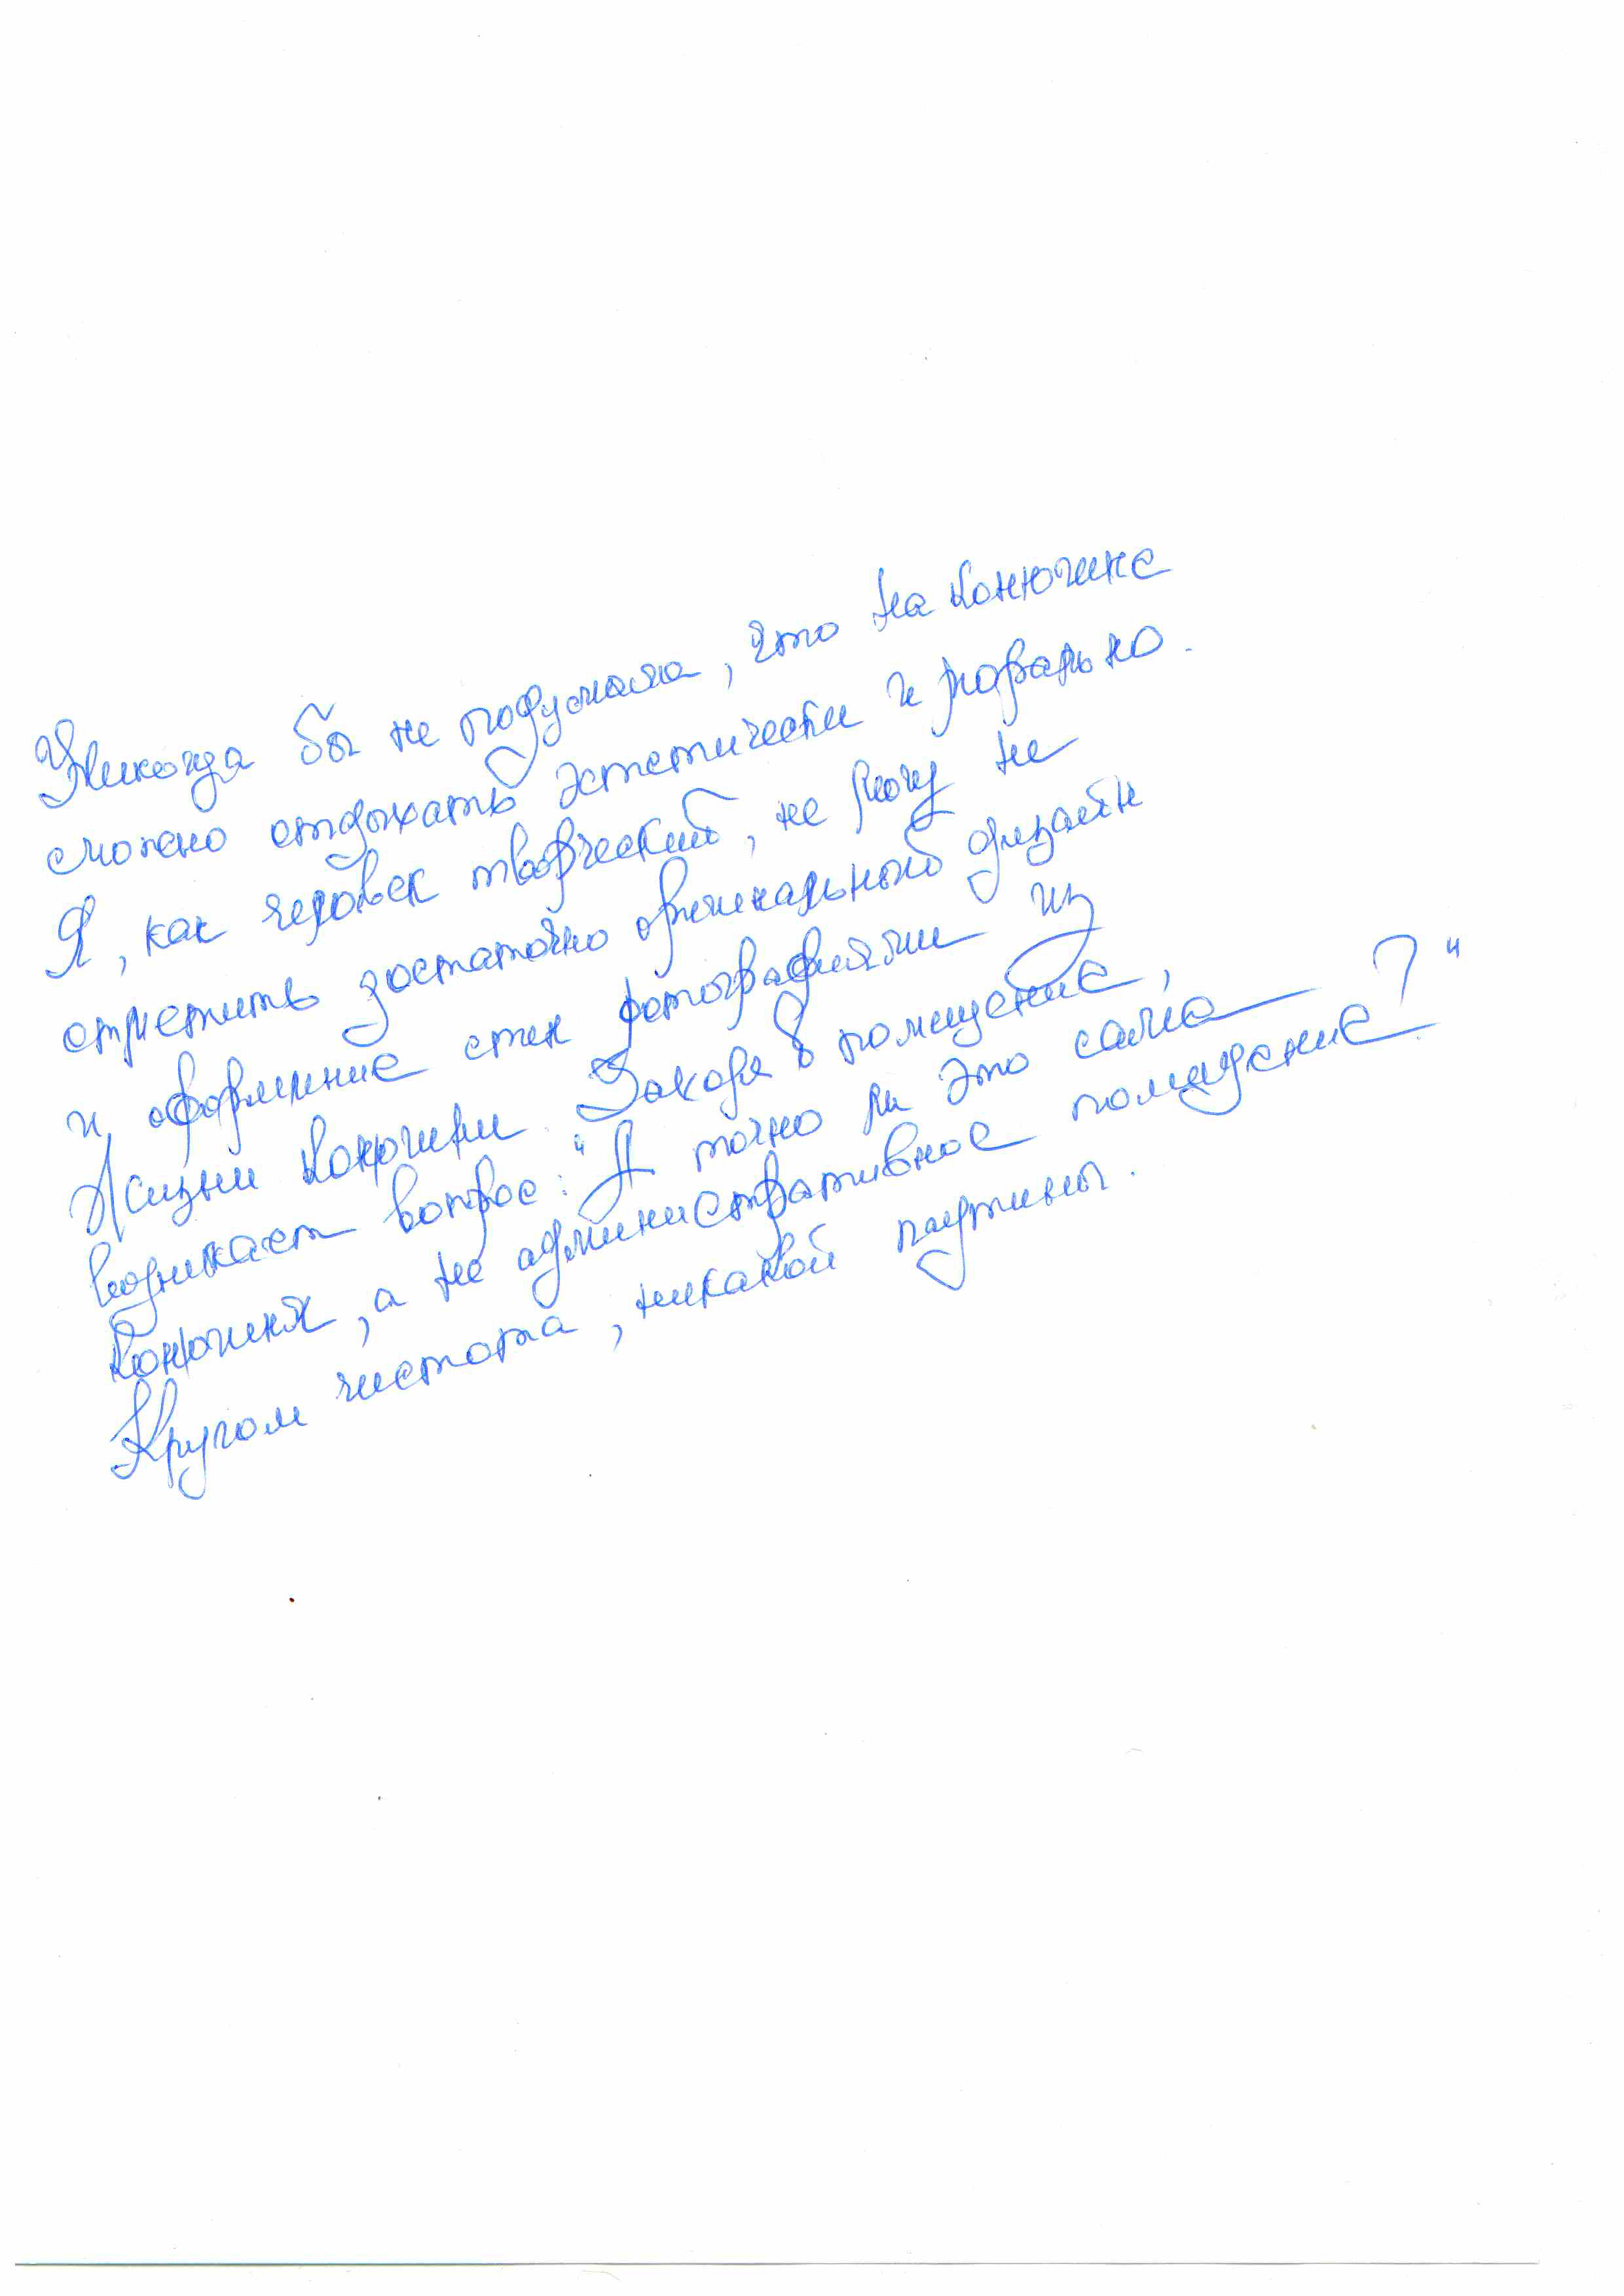 Никогда бы не подумала, что на конюшне
можно отдыхать эстетически и морально.
Я, как человек творческий, не могу не
отметить достаточно оригинальный дизайн
и оформление стен фотографиями из
жизни конюшни. Заходя в помещение,
возникает вопрос: "А точно ли это сама
конюшня, а не административное помещение?"
Кругом чистота, никакой паутины.